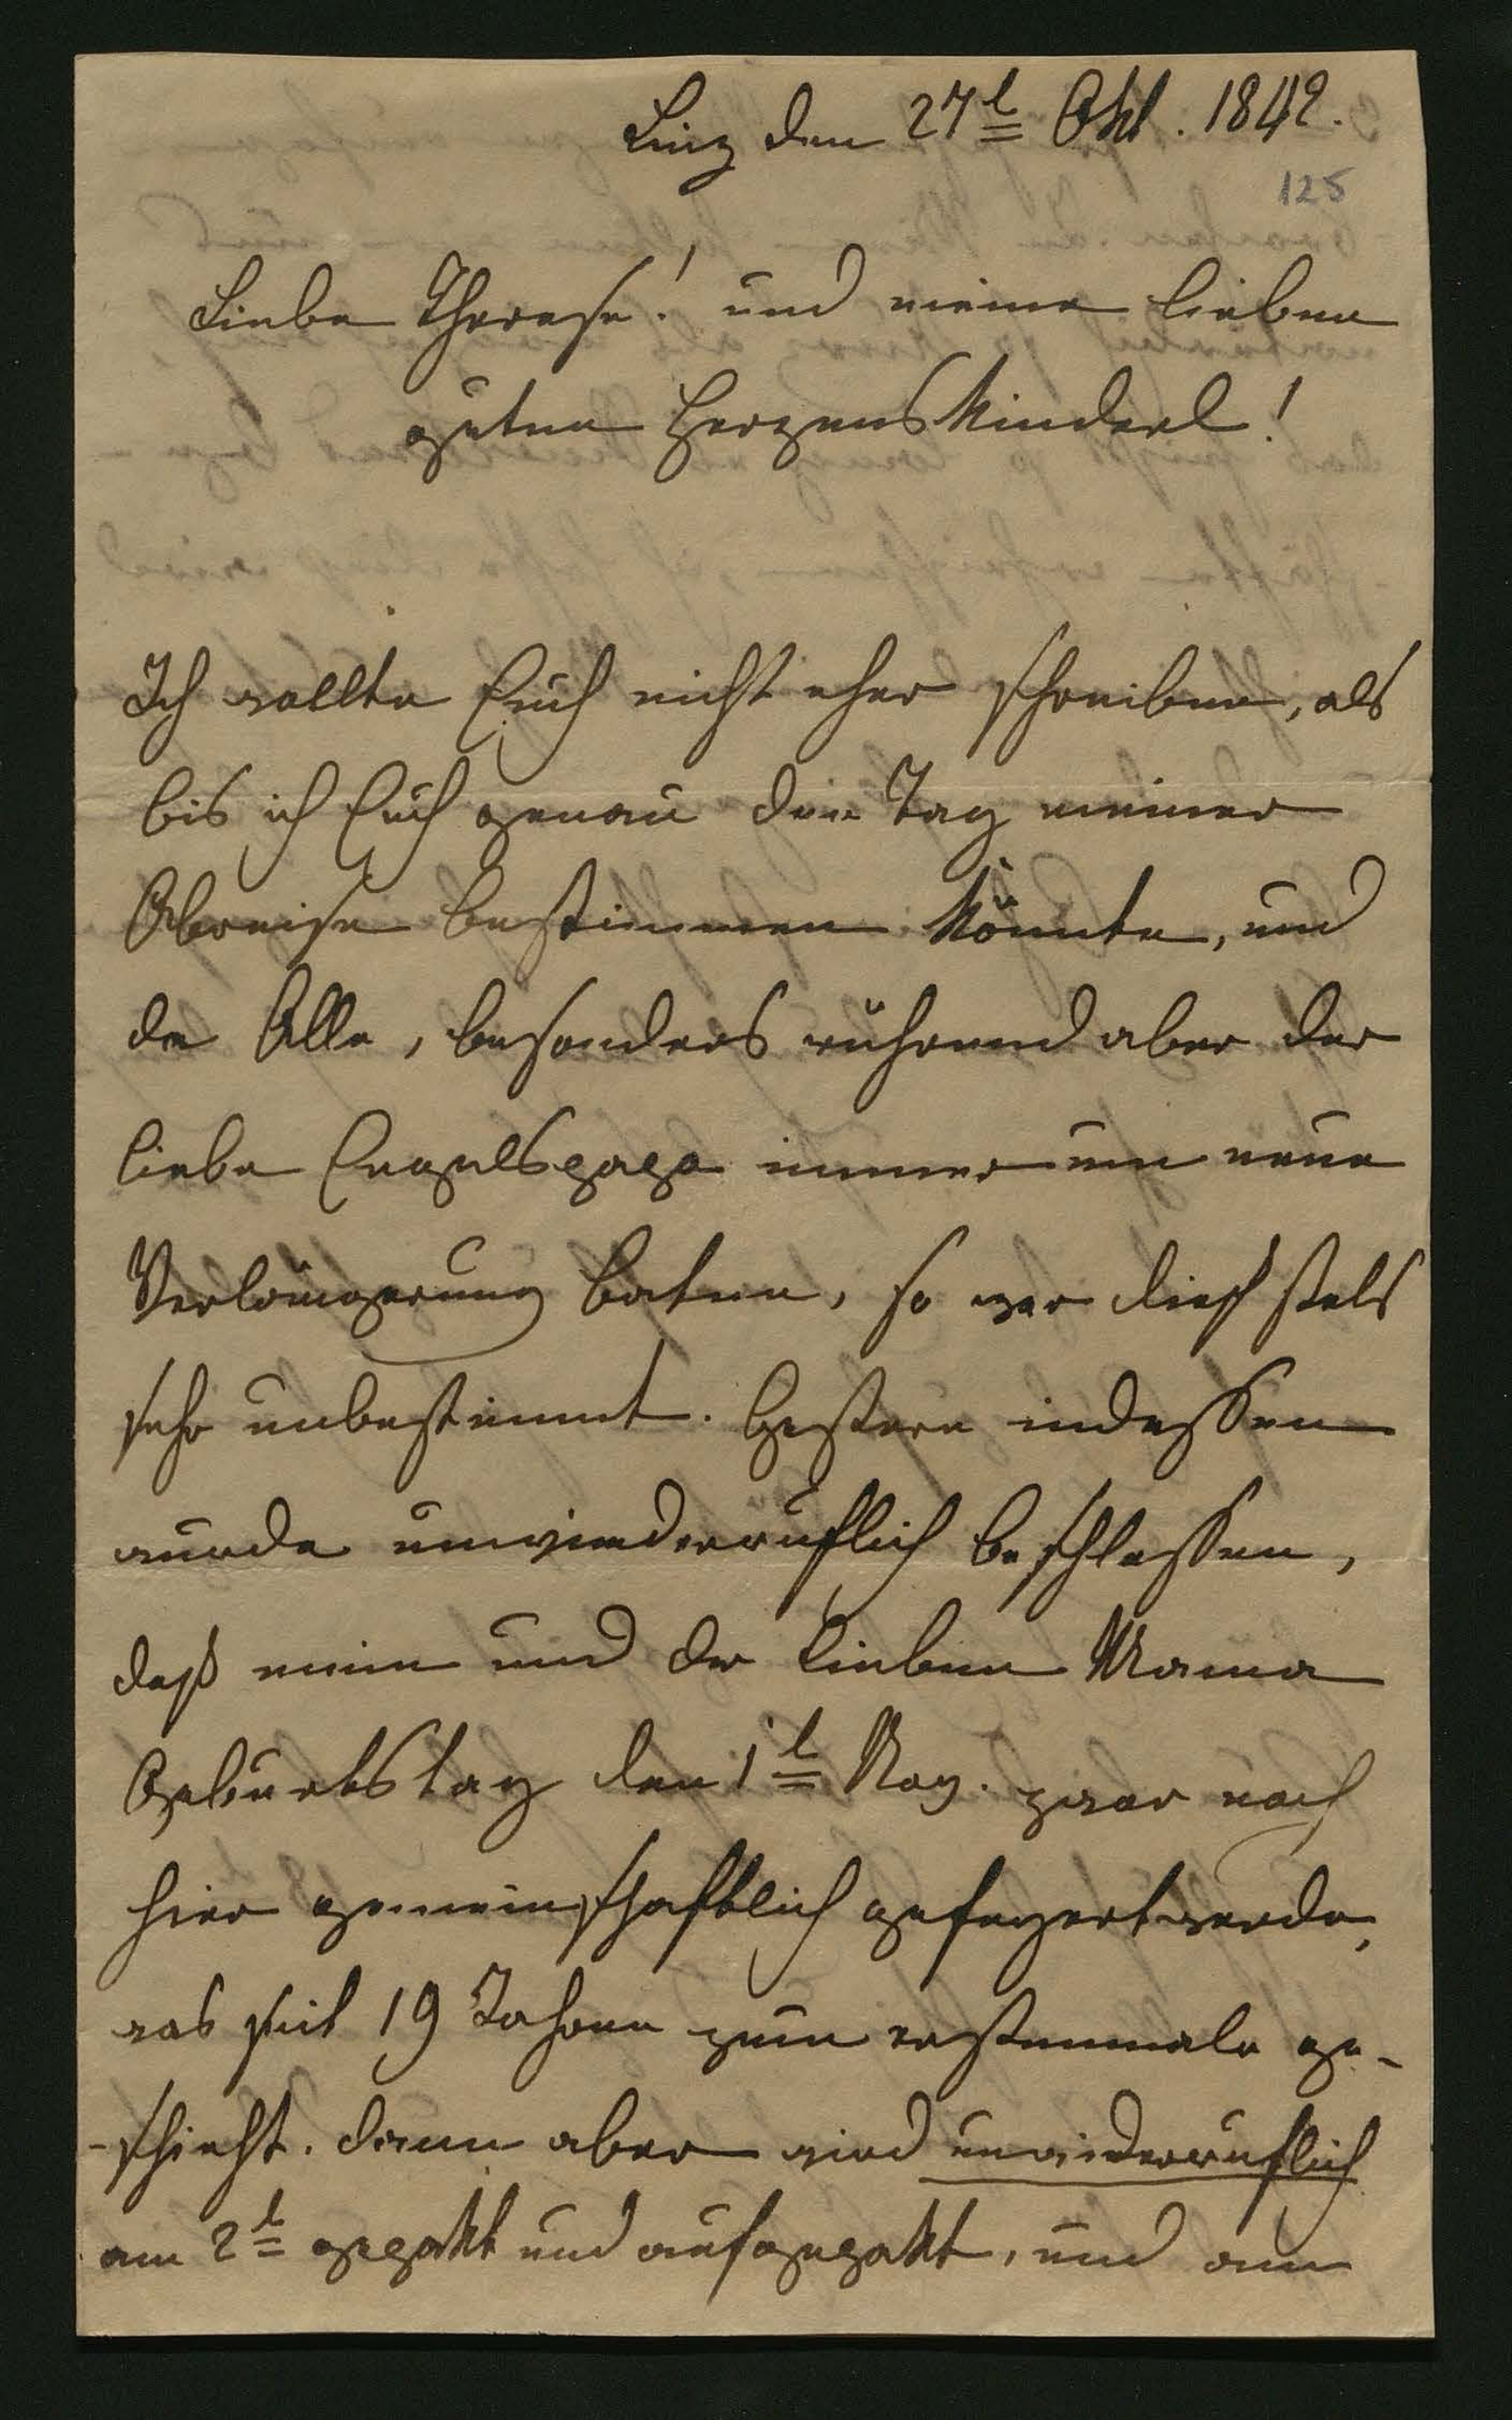 Linz den 27t Okt. 1842.
125
Liebe Therese! und meine lieben
guten Herzenskinderl!
Ich wollte Euch nicht eher schreiben, als
bis ich Euch genau den Tag meiner
Abreise bestimmen könnte, und
da Alle, besonders rührend aber der
liebe Engelspapa immer um neue
Verlängerung baten, so war dieß stets
sehr unbestimmt. Gestern indessen
wurde unwiederruflich beschlossen,
daß mein und der lieben Mama
Geburtstag den 1t Nov. zwar noch
hier gemeinschaftlich gefeyert werde,
was seit 19 Jahren zum erstenmale ge-
-schieht. dann aber wird unwiderruflich
am 2t gepakt und aufgepakt, und am